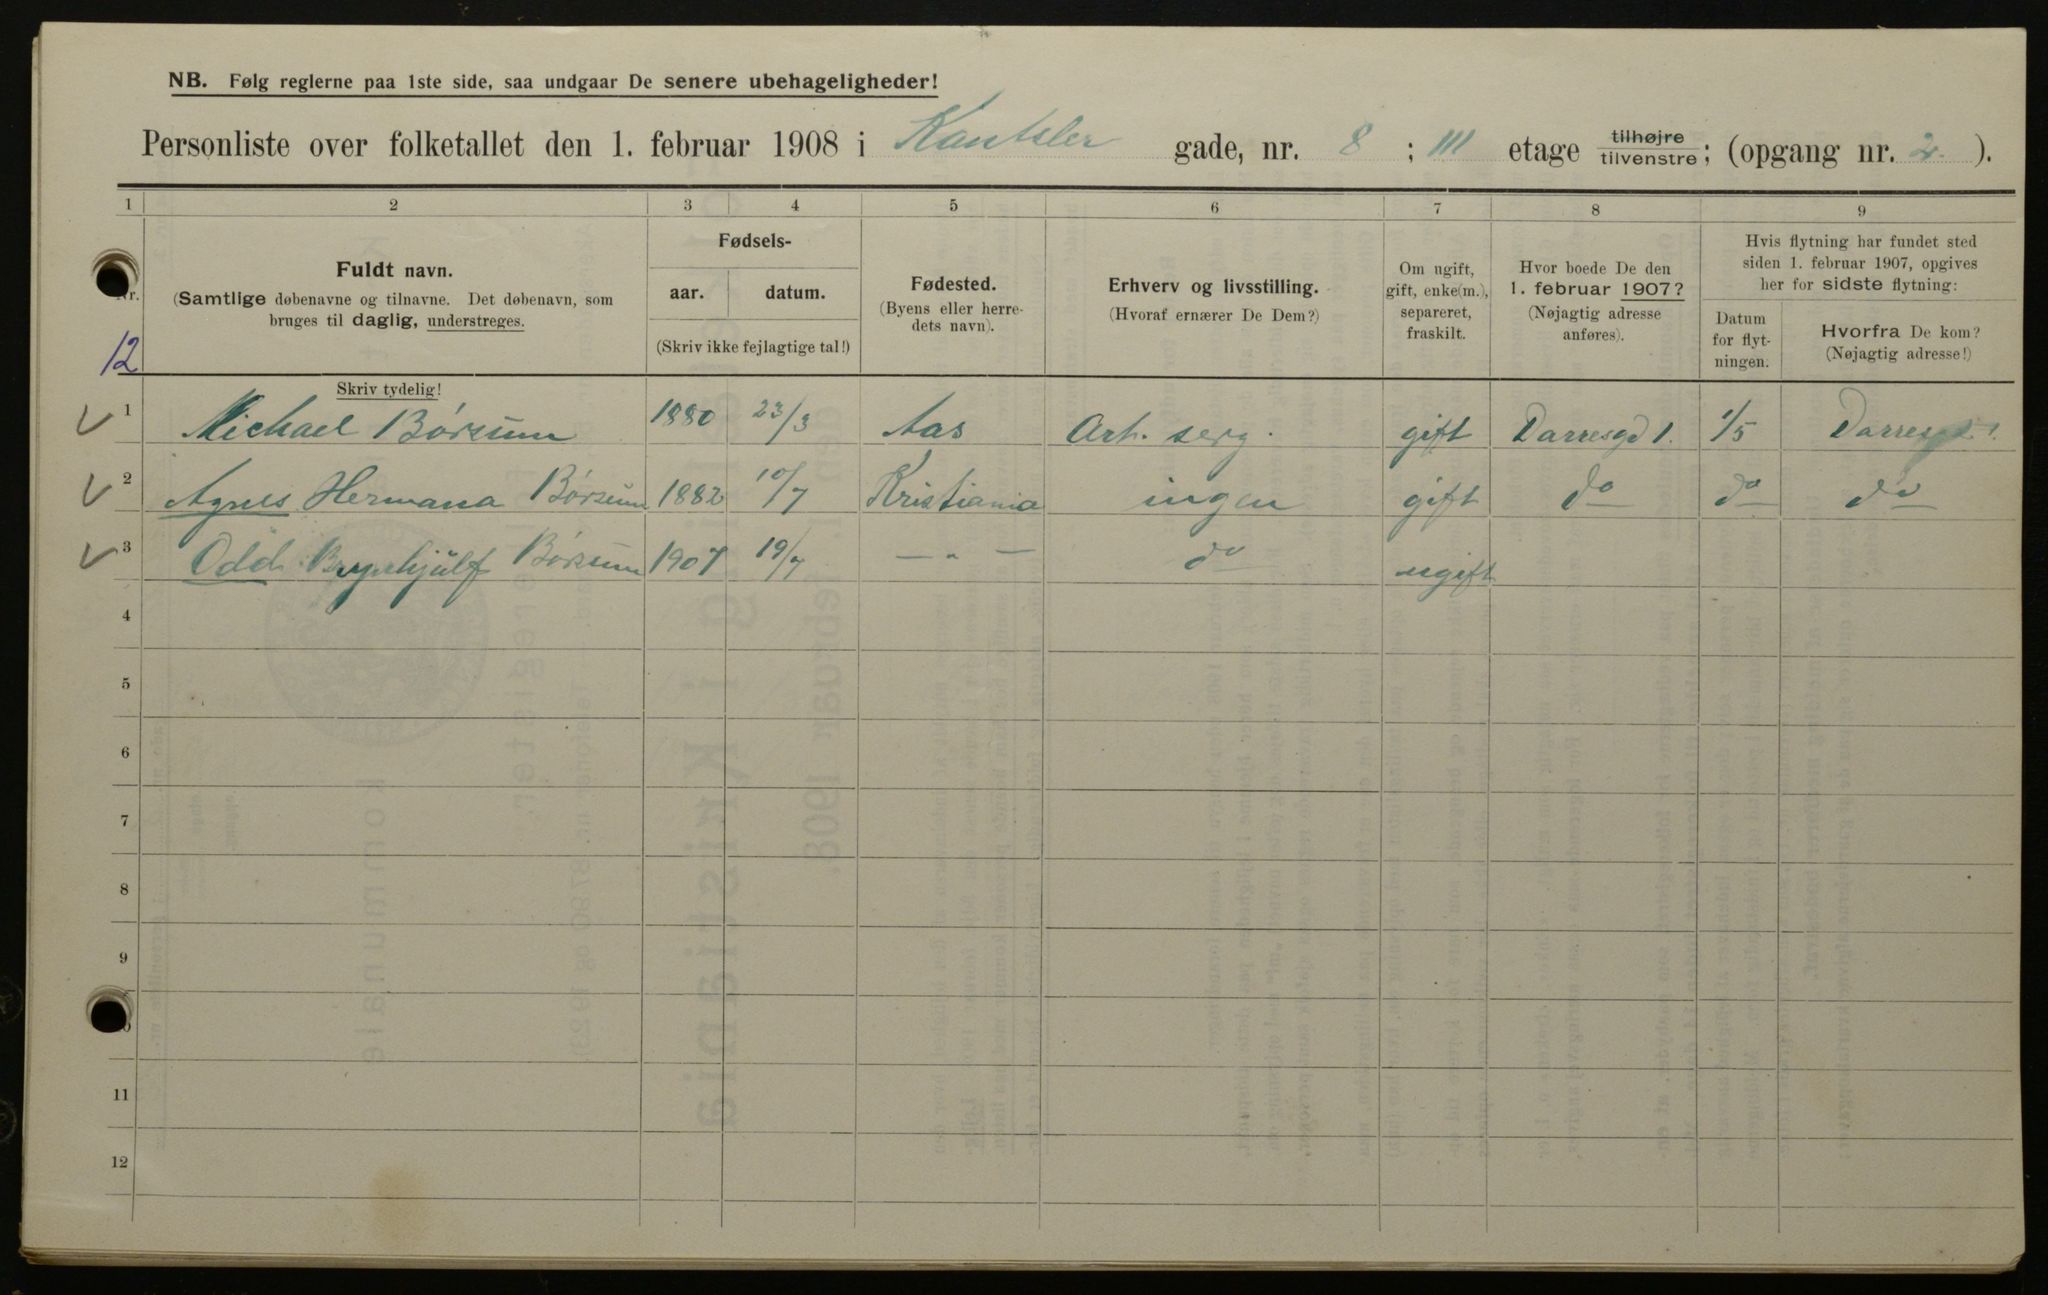 NB. Følg reglerne paa 1ste side, saa undgaar De senere ubehageligheder!
Personliste over folketallet den 1. februar 1908 i Kantsler gade, nr. 8 ; III etage tilhøjre tilvenstre; (opgang nr. 2. ).
1 2 3 4 5 6 7 8 9
Nr.
12
Fuldt navn.
(Samtlige døbenavne og tilnavne. Det døbenavn, som
bruges til daglig, understreges.
Skriv tydelig!
Fødsels-
aar. datum.
(Skriv ikke fejlagtige tal!)
Fødested.
(Byens eller herre-
dets navn).
Erhverv og livsstilling.
(Hvoraf ernærer De Dem?)
Om ugift,
gift, enke(m.),
separeret,
fraskilt.
Hvor boede De den
1. februar 1907?
(Nøjagtig adresse
anføres).
Hvis flytning har fundet sted
siden 1. februar 1907, opgives
her for sidste flytning:
Datum
for flyt-
ningen.
Hvorfra De kom?
(Nøjagtig adresse!)
1 Michael Børsum 1880 23/3 Aas Art. serg. gift Darresgd 1. 1/5 Darresgd 1.
2 Agnes Hermana Børsum 1882 10/7 Kristiania ingen gift do do do
3 Odd Brynhjulf Børsum 1907 19/7 — " — do ugift
4
5
6
7
8
9
11
12